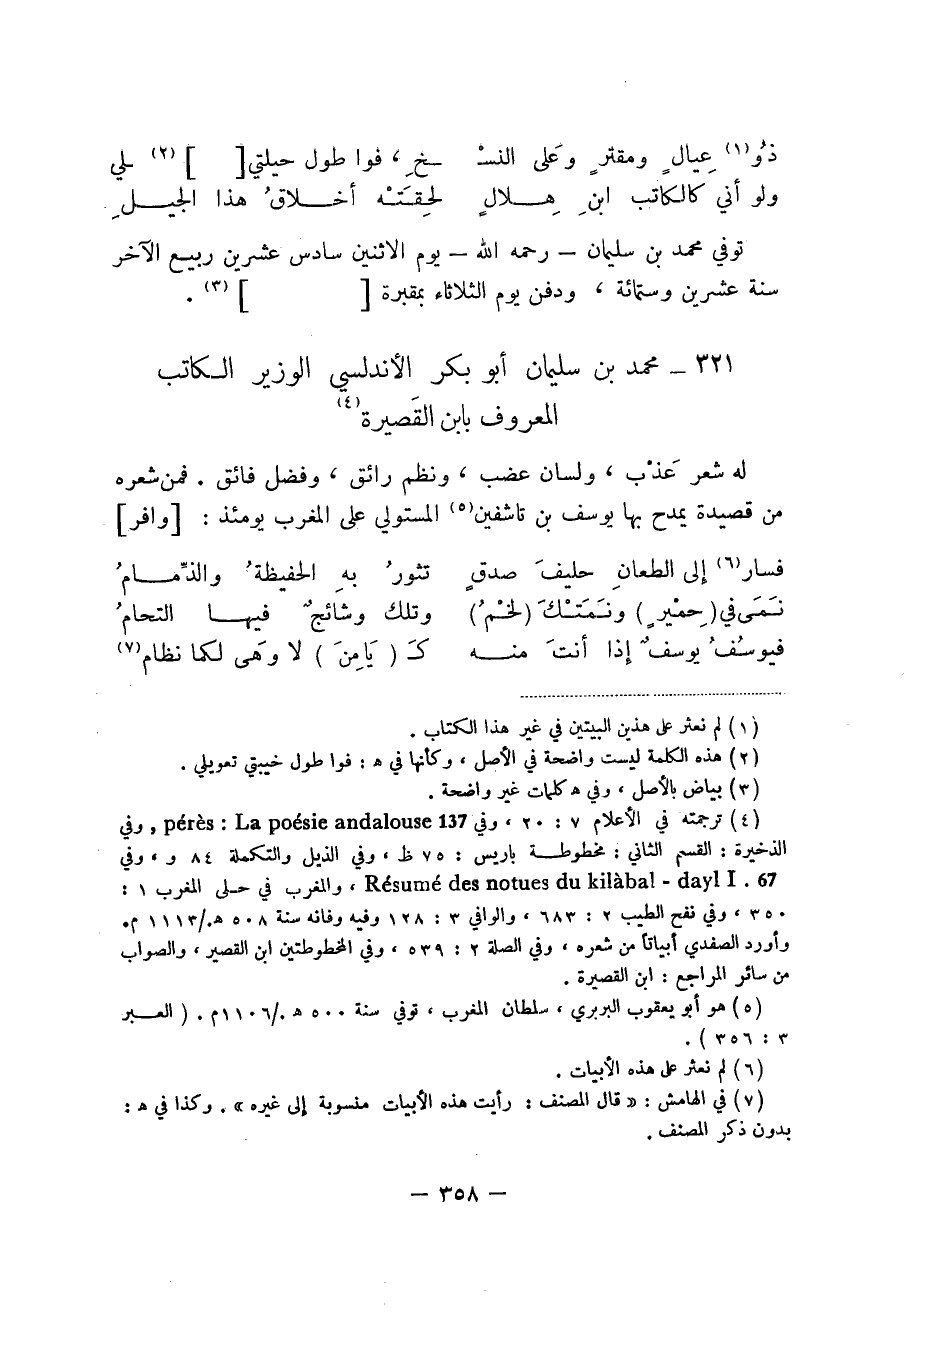 ذُو(١) عِيالٍ ومقترٍ وعلى النسْـ ـخِ ، فوا طول حيلتي[ ](٢) لي
ولو أني كالكاتب ابنِ هِـلالٍ لحِقَتْه أخـلاقُ هذا الجيـلِ
توفي محمد بن سليمان – رحمه الله – يوم الاثنين سادس عشرين ربيع الآخر
سنة عشرين وستمائة ، ودفن يوم الثلاثاء بمقبرة [ ](٣) .
٣٢١ – محمد بن سليمان أبو بكر الأندلسي الوزير الكاتب
المعروف بابن القَصيرة(٤)
له شعر عَذْب ، ولسان عضب ، ونظم رائق ، وفضل فائق . فمن شعره
من قصيدة يمدح بها يوسف بن تاشفين(٥) المستولي على المغرب يومئذ : [وافر]
فسار(٦) إلى الطعانِ حليفَ صدقٍ تثورُ بهِ الحفيظةُ والذِّمـامُ
نَمَى في (حِمْيرٍ) ونَمَتْكَ (لخمُ) وتلك وشائجٌ فيهـا التحامُ
فيوسُفُ يوسفٌ إذا أنتَ منـه كَـ ( يَامِنَ ) لا وهَى لكما نظام(٧)
(١) لم نعثر على هذين البيتين في غير هذا الكتاب .
(٢) هذه الكلمة ليست واضحة في الأصل ، وكأنها في ه : فوا طول خيبتي تعويلي .
(٣) بياض بالأصل ، وفي ه كلمات غير واضحة .
(٤) ترجمته في الأعلام ٧ : ٢٠ ، وفي pérès : La poésie andalouse 137 , وفي
الذخيرة : القسم الثاني : مخطوطـة باريس : ٧٥ ظ ، وفي الذيل والتكملة ٨٤ و ، وفي
Résumé des notues du kilàbal - dayl I . 67 ، والمغرب في حـلى المغرب ١ :
٣٥٠ ، وفي نفح الطيب ٢ : ٦٨٣ ، والوافي ٣ : ١٢٨ وفيه وفاته سنة ٥٠٨ ه./١١١٣ م.
وأورد الصفدي أبياتاً من شعره ، وفي الصلة ٢ : ٥٣٩ ، وفي المخطوطتين ابن القصير ، والصواب
من سائر المراجع : ابن القصيرة .
(٥) هو أبو يعقوب البربري ، سلطان المغرب ، توفي سنة ٥٠٠ ه ./١١٠٦م . ( العـبر
٣ : ٣٥٦ ) .
(٦) لم نعثر على هذه الأبيات .
(٧) في الهامش : « قال المصنف : رأيت هذه الأبيات منسوبة إلى غيره » . وكذا في ه :
بدون ذكر المصنف .
– ٣٥٨ –